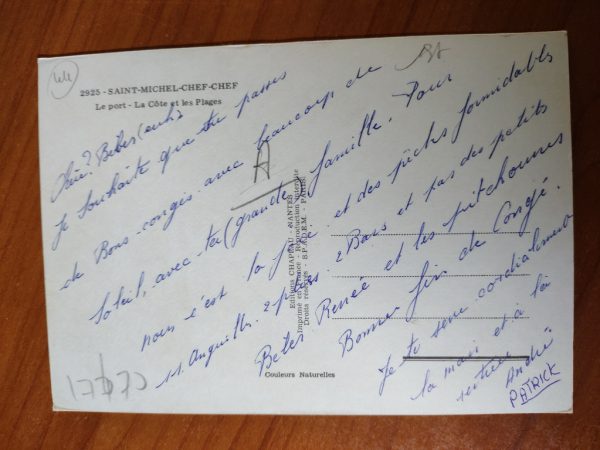 44
2925 - SAINT-MICHEL-CHEF-CHEF
Le port - La Côte et les Plages
Béber
Je souhaite que tu passes
de Bons congés avec beaucoup de
Soleil, avec ta (grande) famille. Pour
nous c'est la joie et des pêches formidables
11 Anguilles. 2 2 Bars et pas des petits
Béber Renée et les pitchounes
Bonne fin de Congé.
Je te serre cordialement
la main et à la
rentrée
André
PATRICK
A
Editions CHAPEAU - NANTES
Imprimé en France - Reproduction interdite
Droits réservés - S.P.A.D.E.M. - PARIS
Couleurs Naturelles